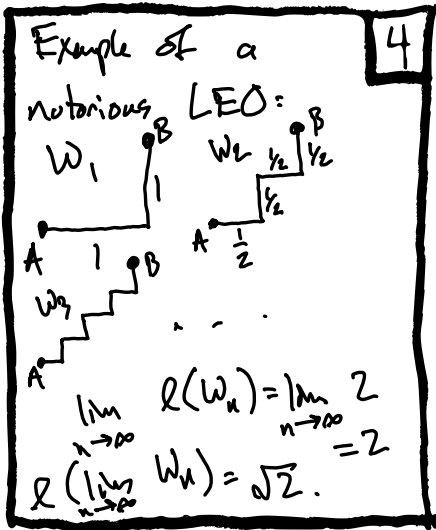 Example of a
4
notorious LEO:
W₁
B
1
A
1
W₂
B
½
½
½
A
1/2
W₃
B
A
. . .
lim n→∞ ℓ(Wₙ) = lim n→∞ 2
= 2
ℓ(lim n→∞ Wₙ) = √2.